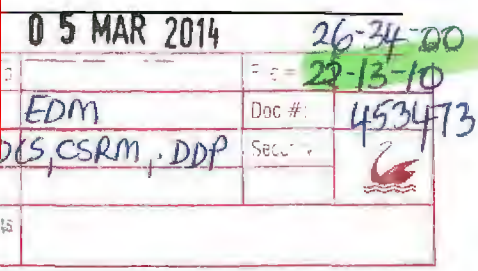 0 5 MAR 2014 26-34-00
22-13-10
EDM Doc #: 453473
DCS, CSRM, DDP